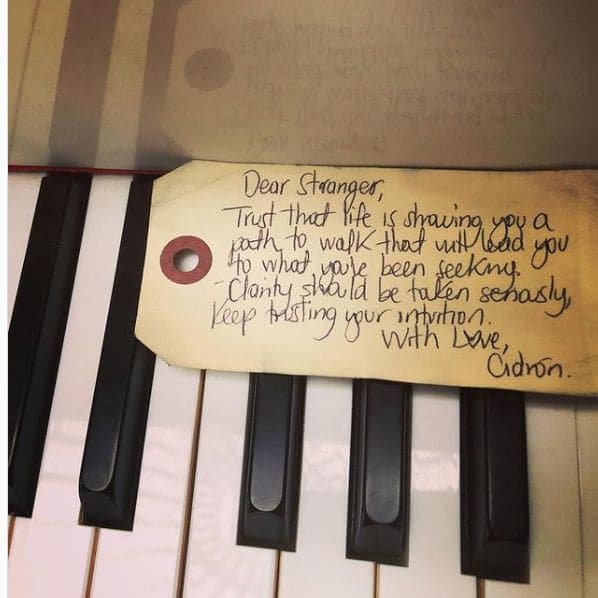 Dear Stranger,
Trust that life is showing you a
path to walk that will lead you
to what you've been seeking.
Clarity should be taken seriously,
keep trusting your intuition.
With Love,